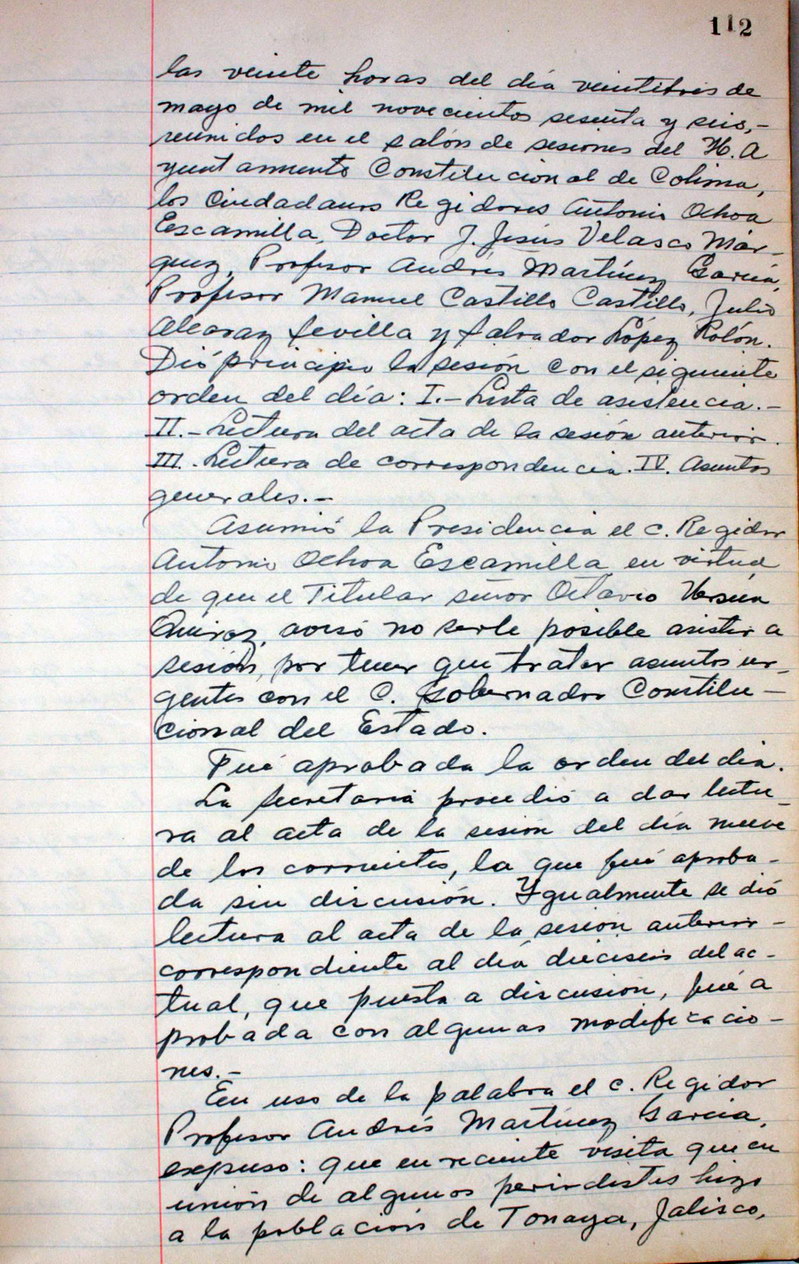 112
las veinte horas del día veintitrés de
mayo de mil novecientos sesenta y seis,-
reunidos en el salón de sesiones del H. A
yuntamiento Constitucional de Colima,
los Ciudadanos Regidores Antonio Ochoa
Escamilla, Doctor J. Jesús Velasco Már-
quez, Profesor Andrés Martínez García,
Profesor Manuel Castillo Castillo, Julio
Alcaraz Sevilla y Salvador López Rolón.
Dió principio la sesión con el siguiente
orden del día: I.- Lista de asistencia.-
II.- Lectura del acta de la sesión anterior.
III.- Lectura de correspondencia. IV. Asuntos
generales.-
Asumió la Presidencia el C. Regidor
Antonio Ochoa Escamilla en virtud
de que el Titular señor Octavio
avisó no serle posible asistir a
sesión, por tener que tratar asuntos ur-
gentes con el C. Gobernador Constitu-
cional del Estado.
Fué aprobada la orden del día.
La Secretaria procedió a dar lectu-
ra al acta de la sesión del día nueve
de los corrientes, la que fué aproba-
da sin discusión. Ygualmente se dió
lectura al acta de la sesión anterior-
correspondiente al día dieciseis del ac-
tual, que puesta a discusión, fué a
probada con algunas modificacio-
nes.-
En uso de la palabra el C. Regidor
Profesor Andrés Martínez García,
expuso: que en reciente visita que en
unión de algunos periodistas hizo
a la población de Tonaya, Jalisco,